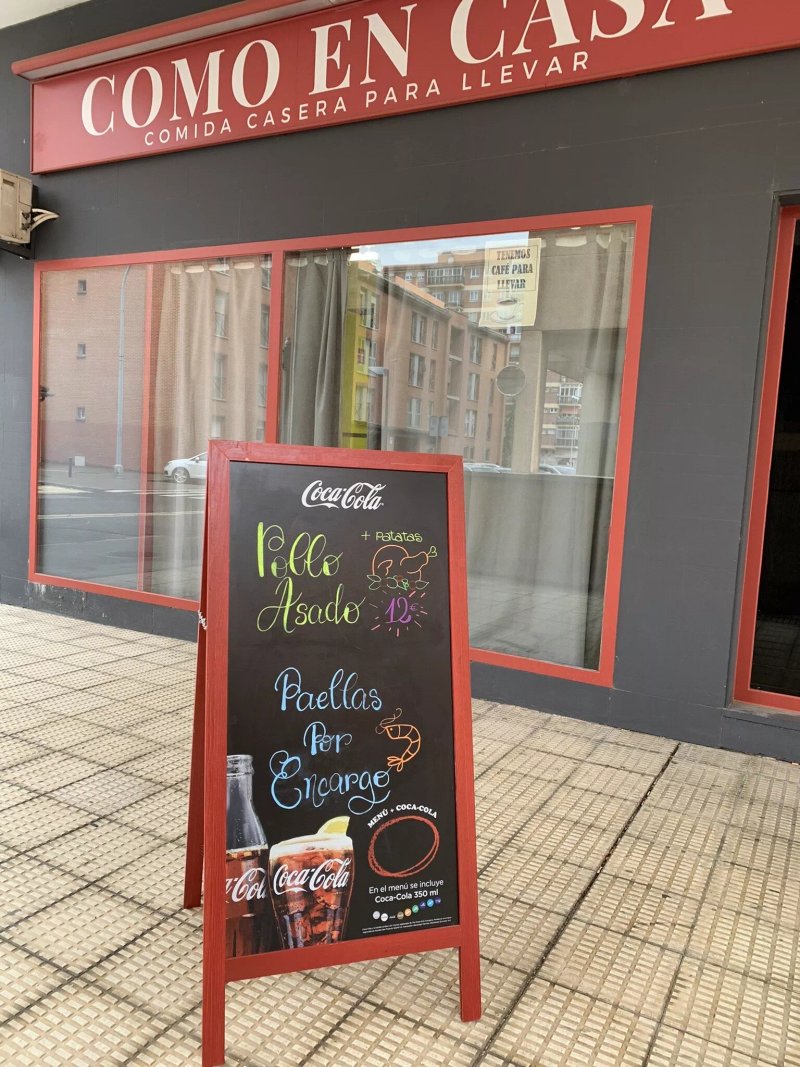 COMO EN CASA
COMIDA CASERA PARA LLEVAR
TENEMOS
CAFÉ PARA
LLEVAR
Coca-Cola
Pollo
Asado
+ Patatas
12€
Paellas
Por
Encargo
MENÚ + COCA-COLA
En el menú se incluye
Coca-Cola 350 ml
Coca-Cola